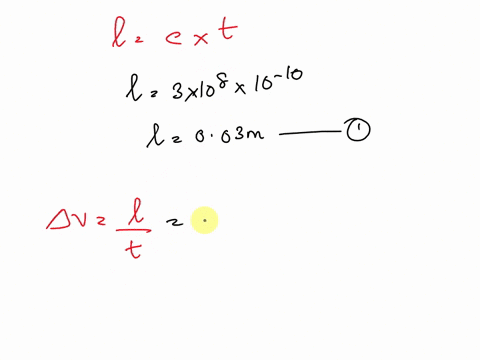 l = c × t
l = 3×10⁸ × 10⁻¹⁰
l = 0.03m —— ①
Δν = l/t = .